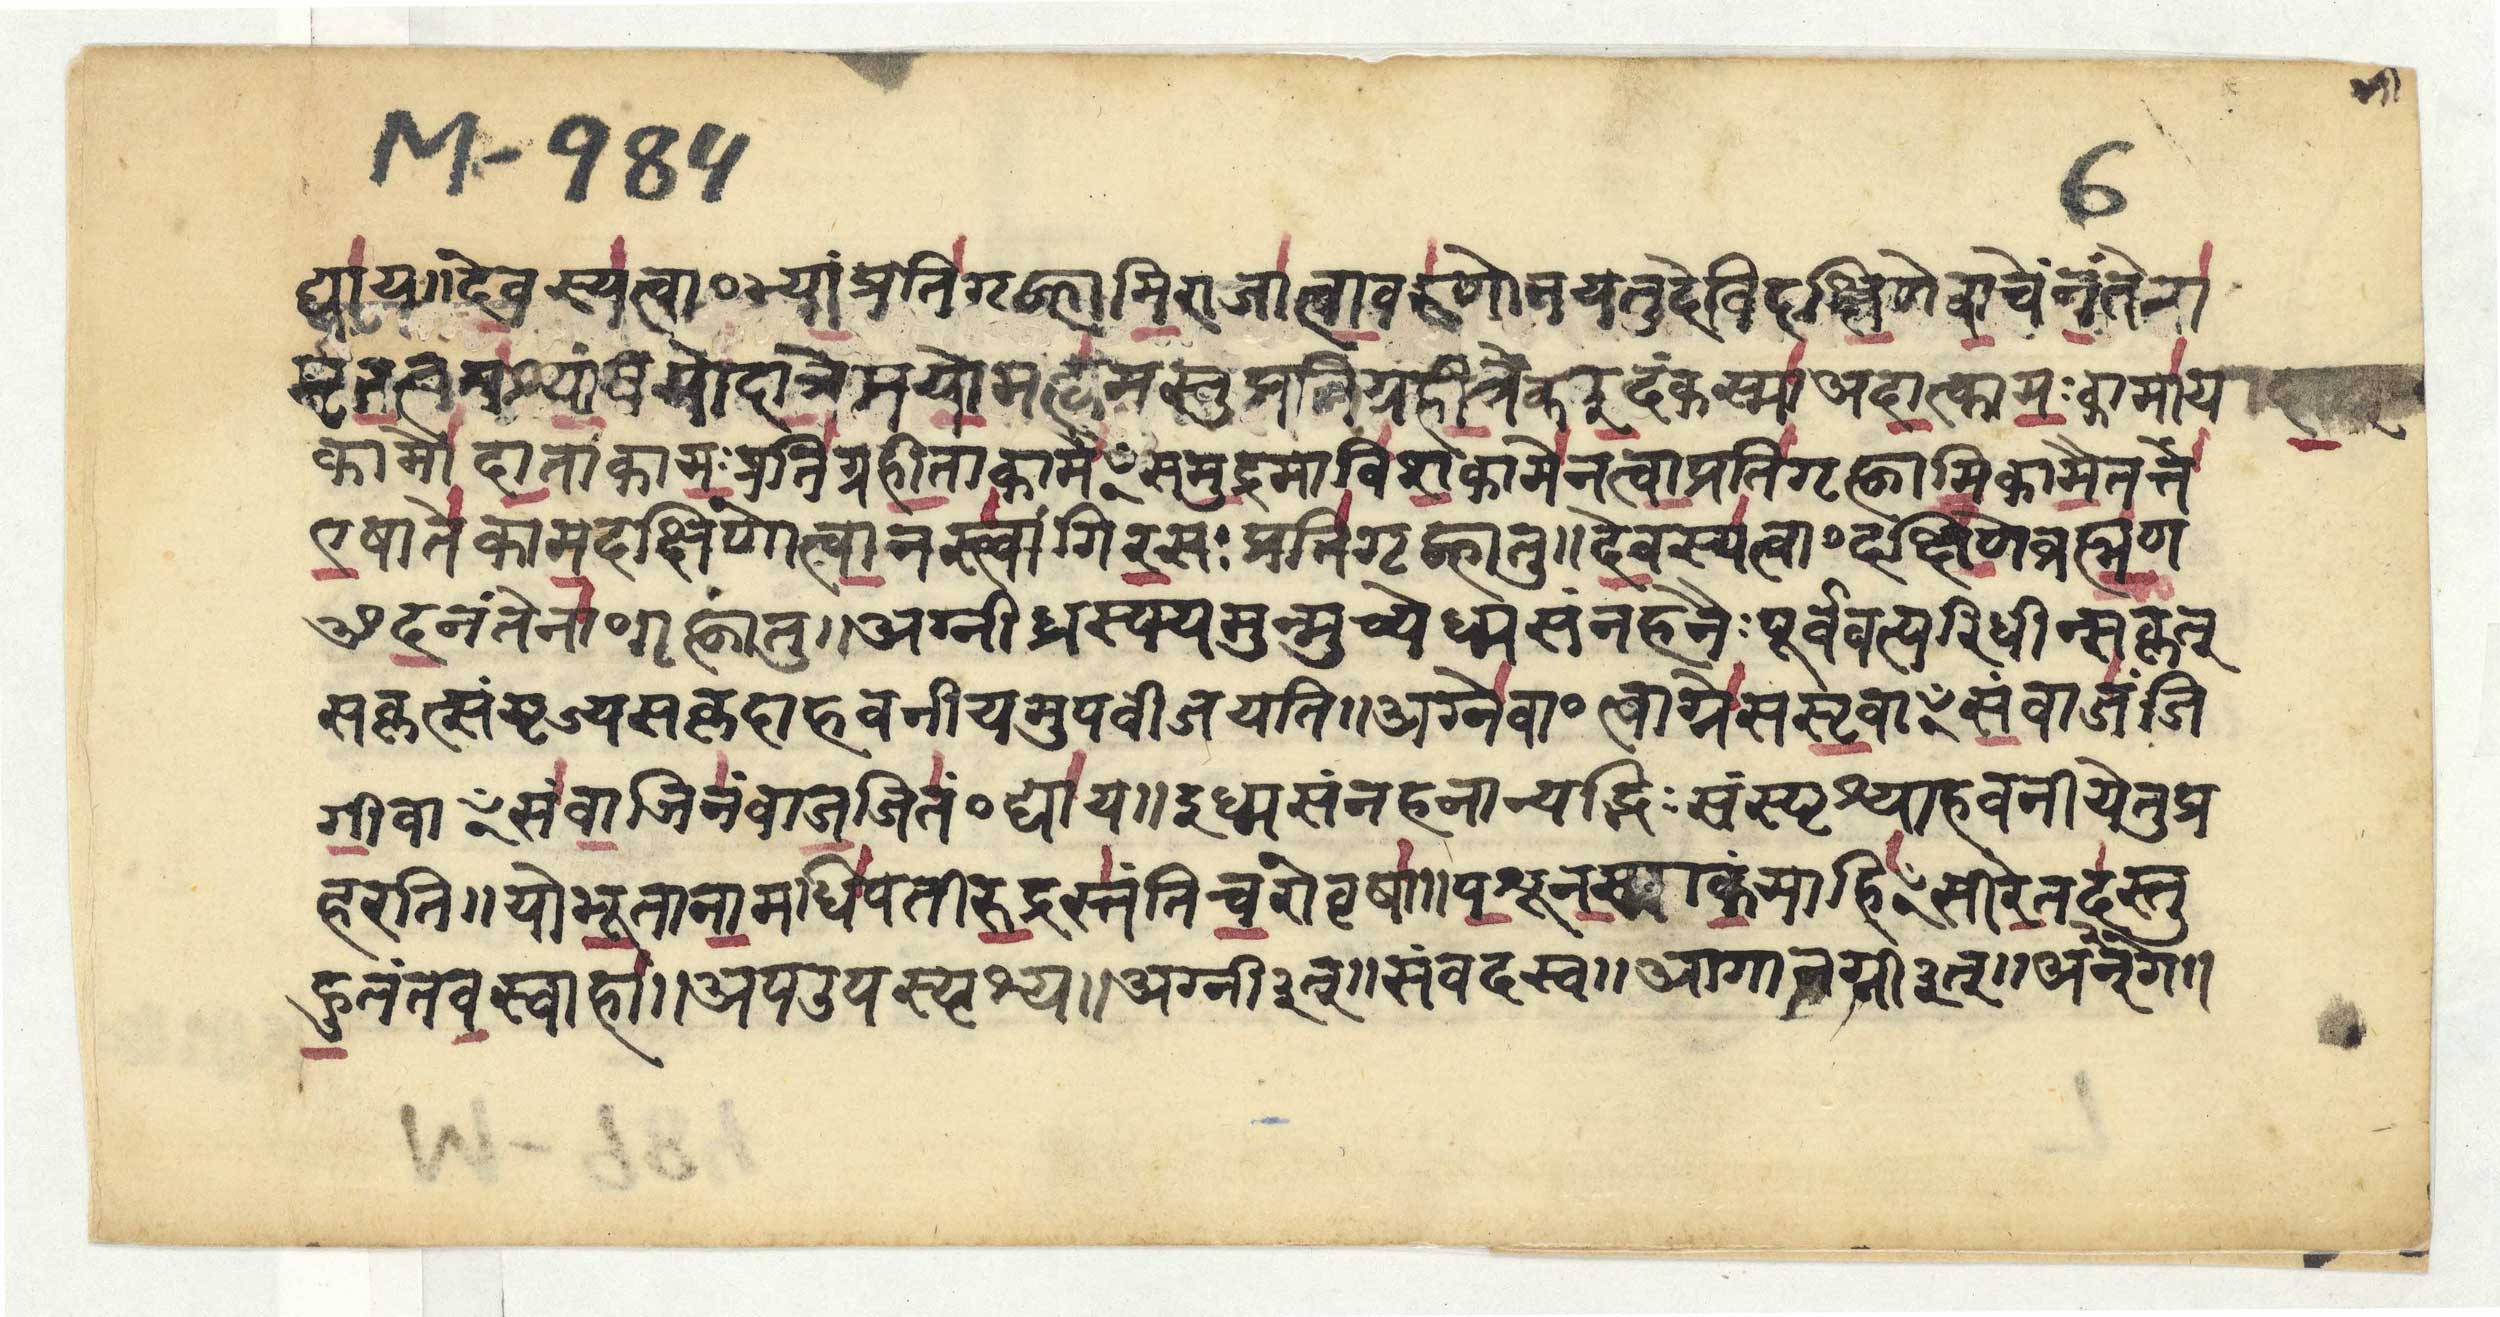 M-984
6
द्याय॥देवस्यत्वा॰भ्यांप्रतिगृह्णामिराजात्वावरुणोनयतुदेविदक्षिणेवाचेनंतेना
मृतत्वमश्यांवयोदात्रेमयोमह्यमस्तुप्रतिग्रहीत्रेकइदंकस्माअदात्कामःकामाय
कामोदाताकामःप्रतिग्रहीताकामꣳसमुद्रमाविशकामेनत्वाप्रतिगृह्णामिकामैतत्ते
एषातेकामदक्षिणोत्वानस्त्वांगिरसःप्रतिगृह्णातु॥देवस्यत्वा॰दक्षिणेब्रह्मण
ओदनंतेना॰गृह्णातु॥अग्नीध्रस्फ्यमुन्मुच्येध्मसंनहनैःपूर्ववत्परिधीन्सकृत्
सकृत्संमृज्यसकृदाहवनीयमुपवीजयति॥अग्नेवा॰त्वाग्नेससृवाꣳसंवाजंजि
गीवाꣳसंवाजिनंवाजजितं॰द्याय॥इध्मसंनहनान्यद्भिःसंस्पृश्याहवनीयेनुप्र
हरति॥योभूतानामधिपतीरुद्रस्तंतिचरोवृषा॥पशूनस्माकंमाहिꣳसीरेतदस्तु
हुतंतवस्वाहा॥अपउपस्पृश्य॥अग्नी३त्॥संवदस्व॥अगानग्नी३त्॥अगन्॥